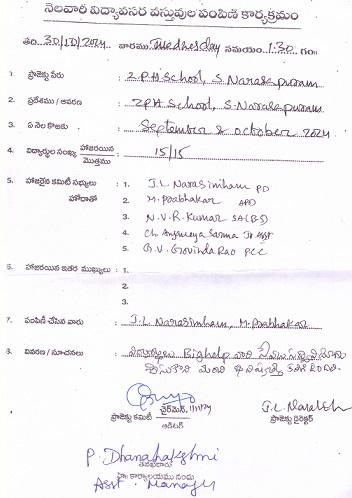 నెలవారీ విద్యావసర వస్తువుల పంపిణీ కార్యక్రమం
తేది: 30/10/2024 వారము Wednesday సమయం 1:30 గం॥
1. ప్రాజెక్టు పేరు : Z.P.H School, S. Narasapuram
2. ప్రదేశము / ఆవరణ : ZPH School, S. Narasapuram
3. ఏ నెల కొఱకు : September & October 2024
4. విద్యార్థుల సంఖ్య హాజరయిన / మొత్తము : 15/15
5. హాజరైన కమిటీ సభ్యులు హోదాతో : 1. J.L. Narasimham PD
2. M. Prabhakar APD
3. N.V.R. Kumar SA(B.S)
4. Ch. Anjaneya Sarma Jr Asst
5. G.V. Govinda Rao PCC
6. హాజరయిన ఇతర ముఖ్యులు : 1.
2.
3.
7. పంపిణీ చేసిన వారు : J.L. Narasimham, M. Prabhakar
8. వివరణ / సూచనలు : విద్యార్థులు Bighelp వారి
ప్రాజెక్టు కమిటీ ఛైర్‌మెన్ ప్రాజెక్టు డైరెక్టర్
ఆడిటర్
P. Dhanalakshmi
Asst. Manager